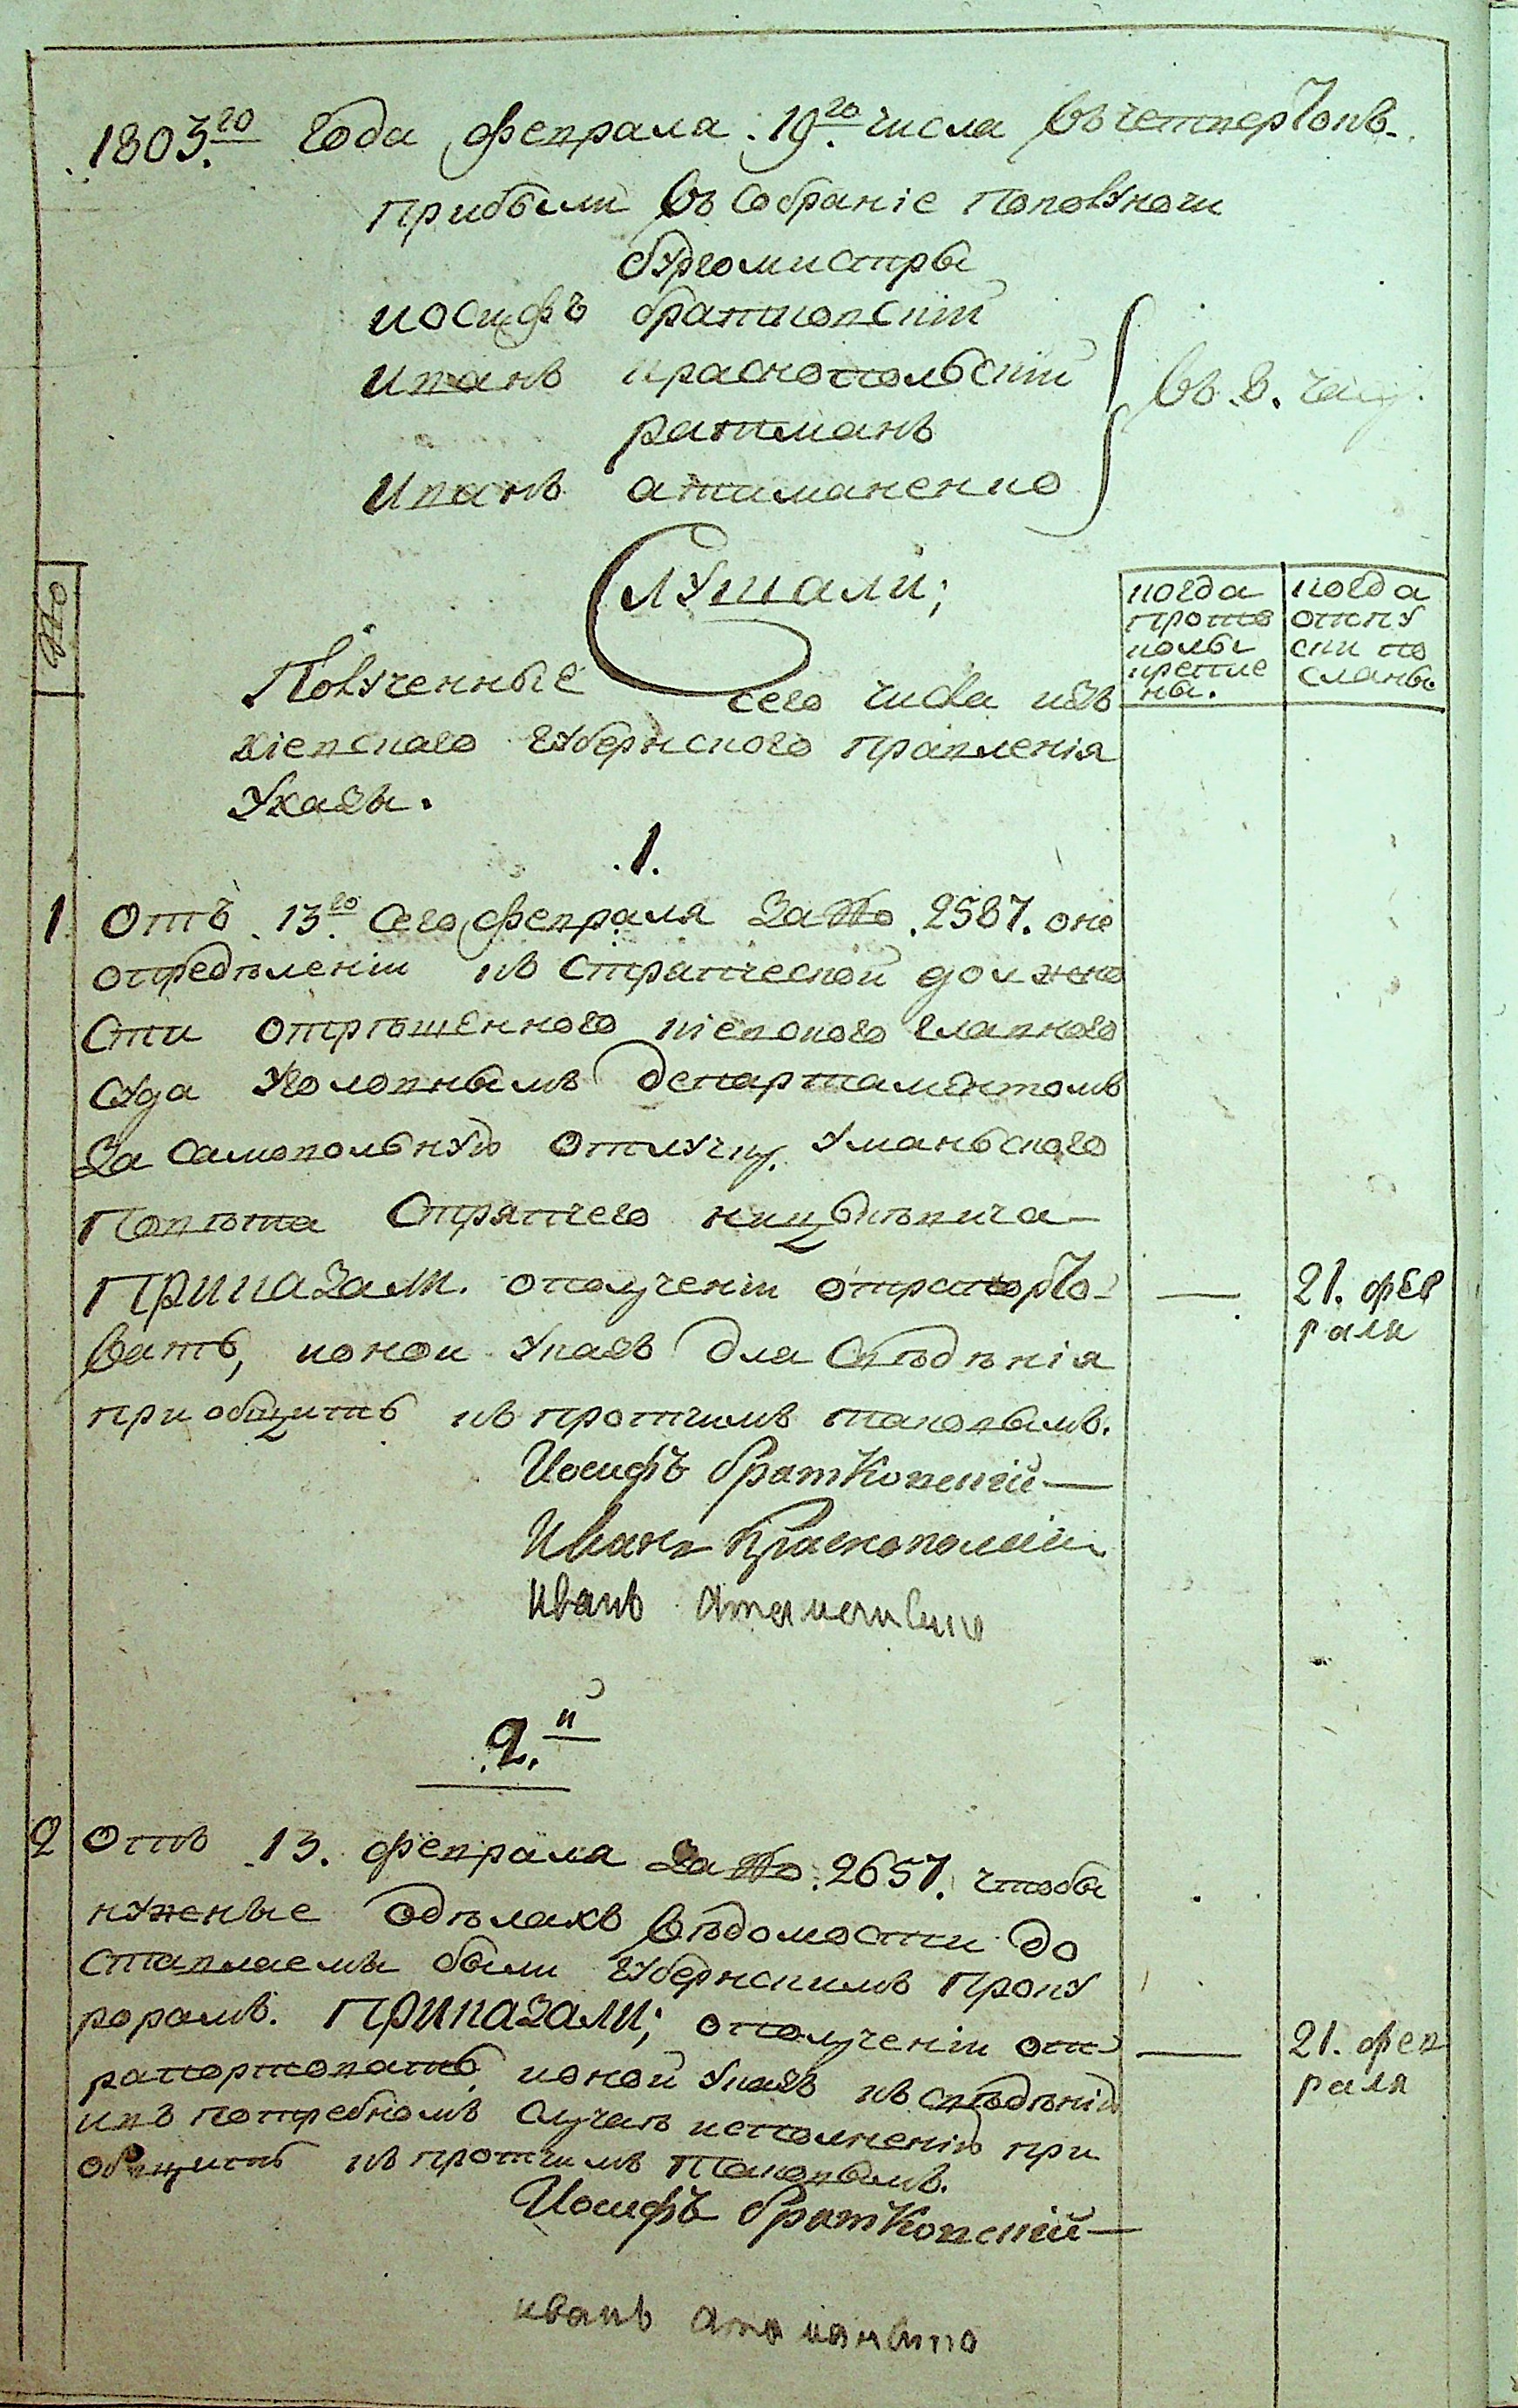 1803.го Года февраля 19.го числа Въ четвертокъ.
Прибыли Въ собраніе Пополуночи
бургомистры
иосифъ братковскій
иванъ краснопольскій
ратманъ
иванъ атаманенко
Въ 8. часу.
Слушали;
№
когда прото колы крепле ны.
когда отпу ски по сланы.
Полученные сего числа изъ
кіевского губернского правленія
Указы.
.1.
1 Отъ 13.го Сего февраля За № 2587. оне
определеніи къ стряпческой должно
сти отрѣшенного кіевского главного
суда уголовнымъ департаментомъ
За самовольную отлучку Уманьского
Повѣта Стряпчего
Приказали. о полученіи отрапорто-
вать, и оной указъ для Свѣдѣнія
приобщить къ протчимъ таковымъ.
21. фев
раля
Иосифъ братковскій
Иванъ Краснополскій
иванъ Атаманенко
2.й
2 Отъ 13. февраля За № 2657. чтобы
нуженые одѣлахъ вѣдомости до
ставляемы были губернскимъ проку
рорамъ. Приказали; о полученіи от-
рапортовать, и оной указъ къ свѣденію
ивъ потребномъ случаѣ исполненію при
общить къ протчимъ таковымъ.
21. фев
раля
Иосифъ братковскій
иванъ Атаманенко